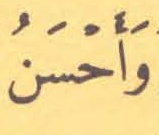 وَأَحْسَنُ